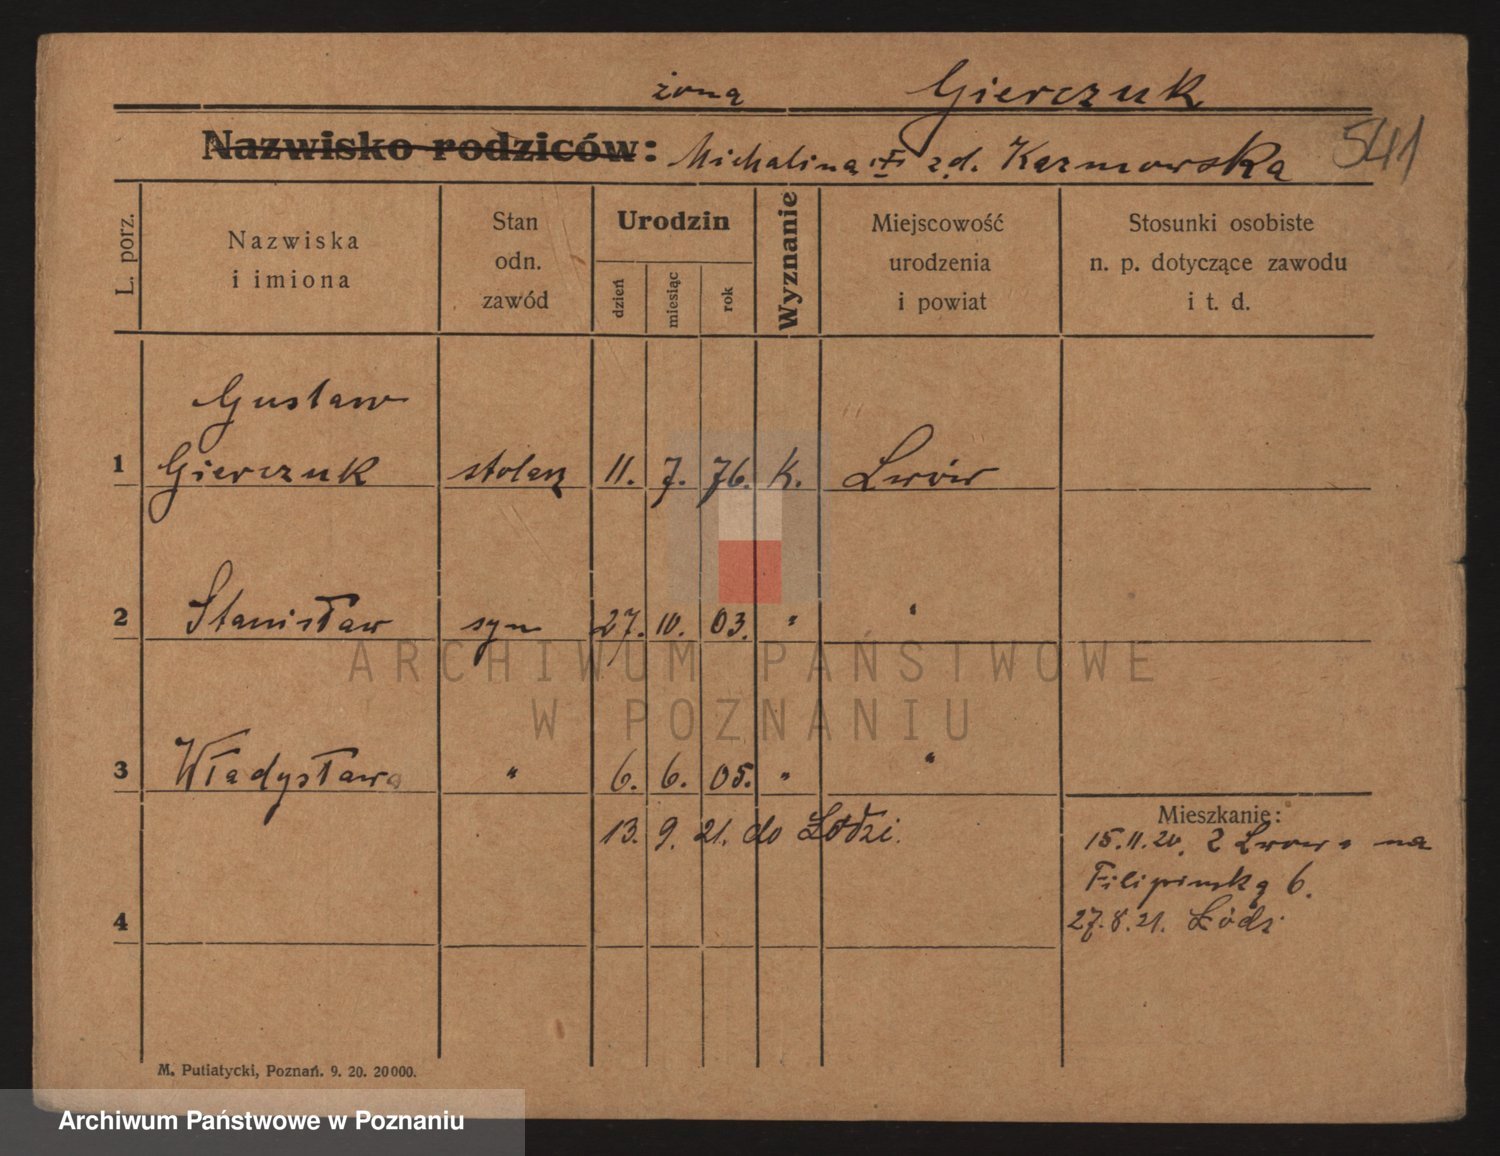 żona Gierczuk
Nazwisko rodziców: Michalina z d. Karnowska 541
L. porz.
Nazwiska
i imiona
Stan
odn.
zawód
Urodzin
dzień
miesiąc
rok
Wyznanie
Miejscowość
urodzenia
i powiat
Stosunki osobiste
n. p. dotyczące zawodu
i t. d.
Gustaw
1 Gierczuk stolarz 11. 7. 76. k. Lwów
2 Stanisław syn 27. 10. 03. " "
3 Władysława " 6. 6. 05. " "
13. 9. 21. do Łodzi.
Mieszkanie:
15.11.20. z Lwowa na
Filipińską 6.
27.8.21. Łódź
4
M. Putiatycki, Poznań. 9. 20. 20000.
ARCHIWUM PAŃSTWOWE
W POZNANIU
Archiwum Państwowe w Poznaniu